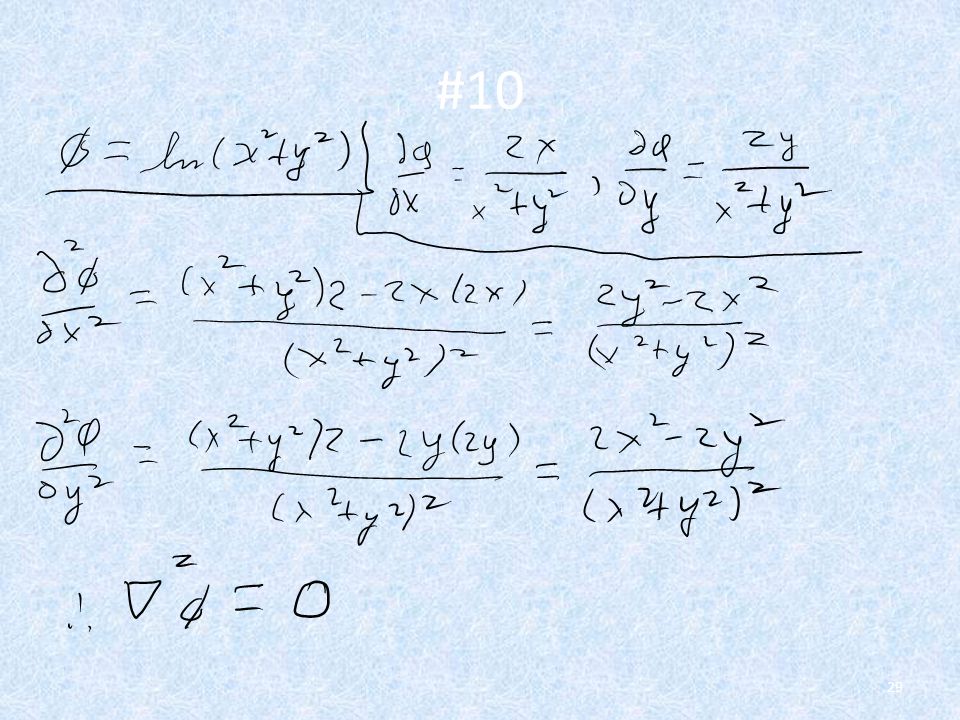 #10
ϕ = ln(x²+y²) { ∂φ/∂x = 2x/(x²+y²) , ∂φ/∂y = 2y/(x²+y²)
∂²ϕ/∂x² = ((x²+y²)2 - 2x(2x))/(x²+y²)² = (2y²-2x²)/(x²+y²)²
∂²φ/∂y² = ((x²+y²)2 - 2y(2y))/(x²+y²)² = (2x²-2y²)/(x²+y²)²
∴ ∇²ϕ = 0
29